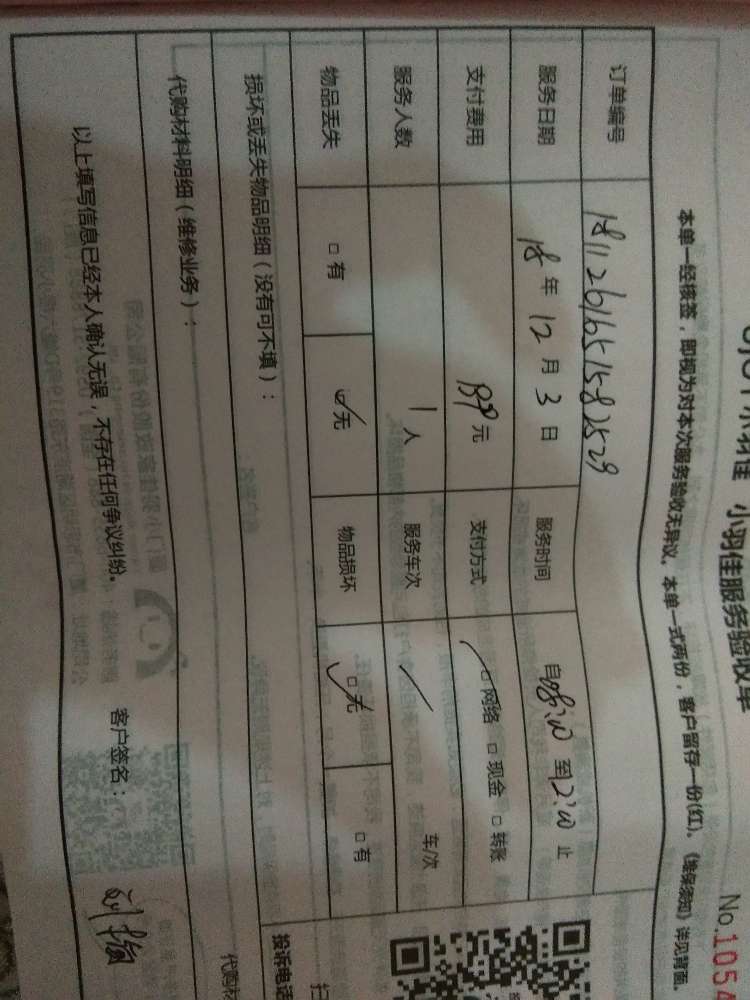 小羽佳 小羽佳服务验收单
No.1054
本单一经核签，即视为对本次服务验收无异议。本单一式两份，客户留存一份(红)。《维保须知》详见背面。
订单编号 1811261651582529
服务日期 18 年 12 月 3 日 服务时间 自 08:00 至 12:00 止
支付费用 元 支付方式 □网络 □现金 □转账
服务人数 1 人 服务车次 车/次
物品丢失 □有 □无 物品损坏 □无 □有
损坏或丢失物品明细（没有可不填）：
投诉电话
代购材料明细（维修业务）：
以上填写信息已经本人确认无误，不存在任何争议纠纷。 客户签名：